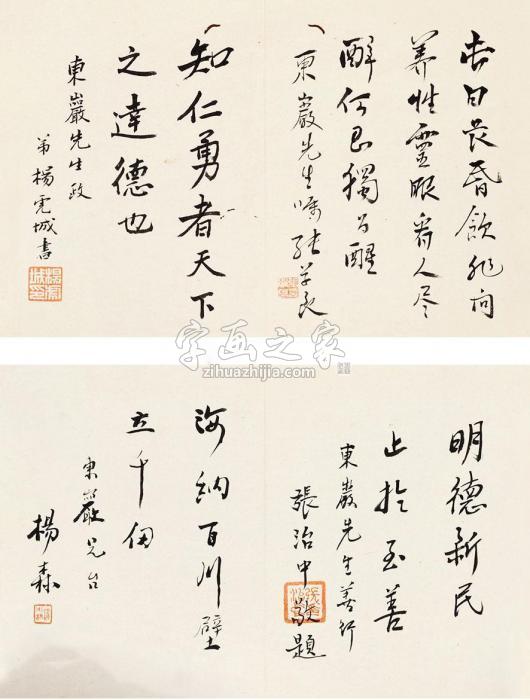 此日長昏飲非關
養性靈眼看人尽
醉何忍獨為醒
東巖先生囑 張學良
知仁勇者天下
之達德也
東巖先生政
弟楊虎城書
楊虎城印
字画之家
zihuazhijia.com
明德新民
止於至善
東巖先生善行
張治中敬題
海納百川壁
立千仞
東巖兄台
楊森